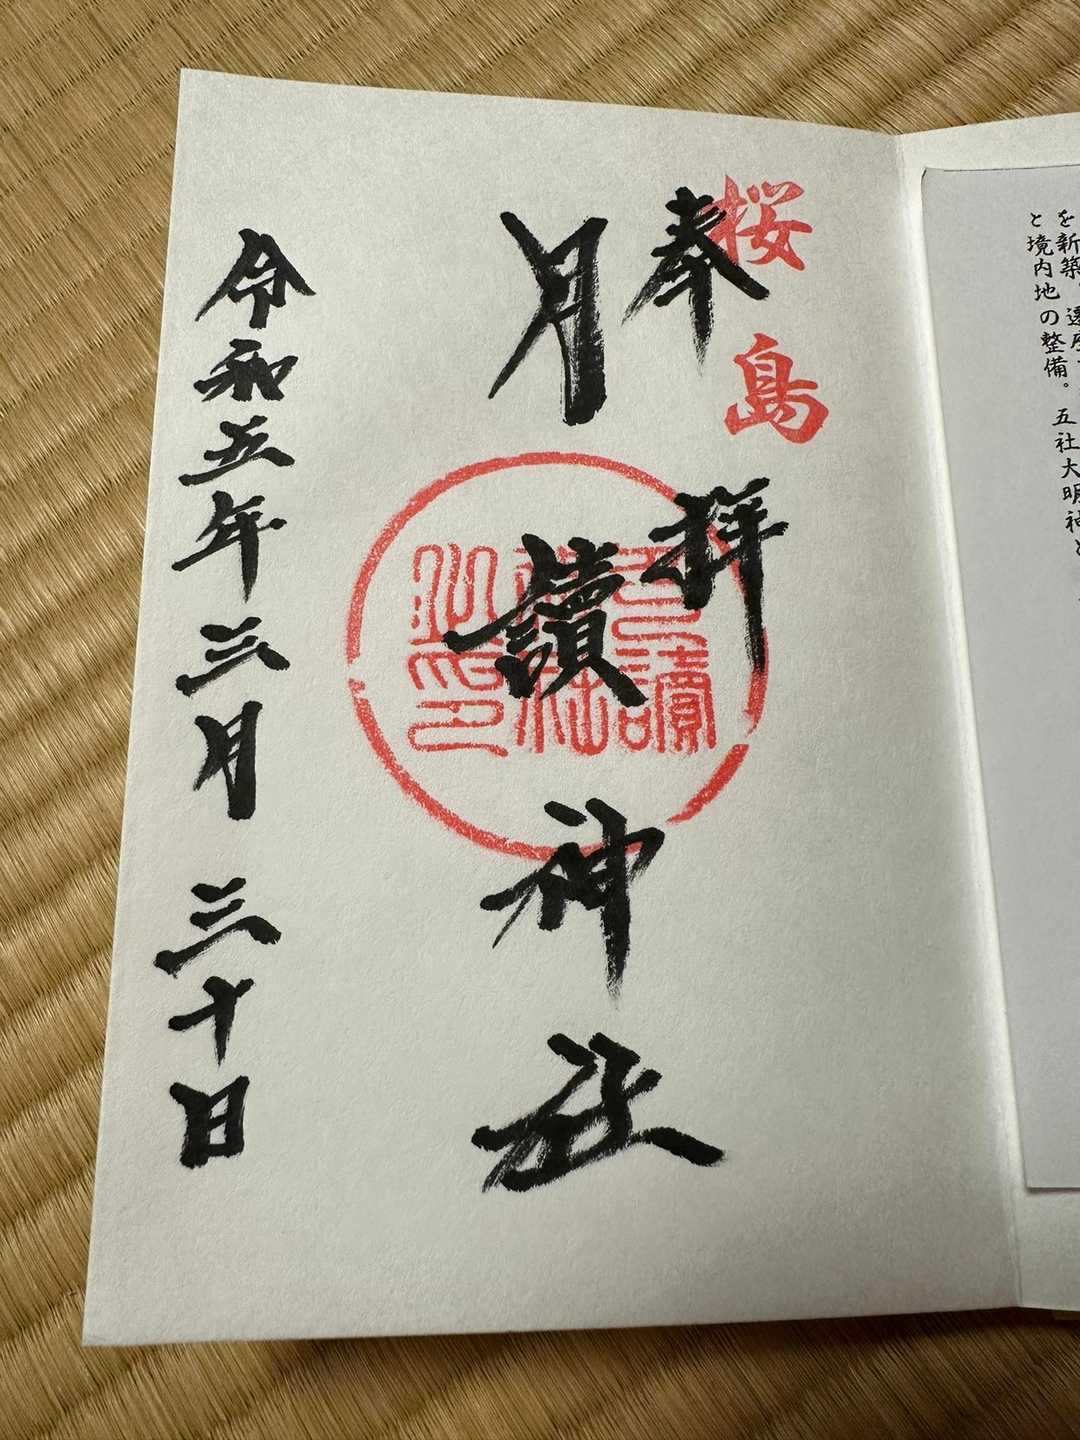 を新築・遷座
と境内地の整備。五社大明神と
桜島
奉拝
月讀神社
月讀神社之印
令和五年三月三十日